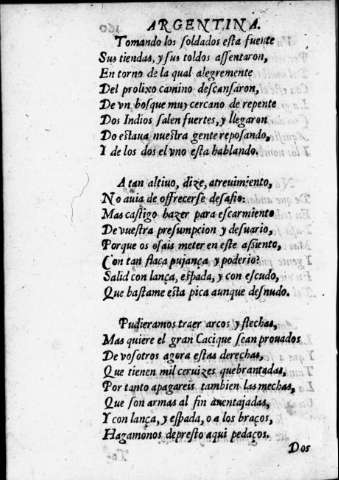 ARGENTINA.
Tomando los soldados esta fuente
Sus tiendas, y sus toldos assentaron,
En torno de la qual alegremente
Del prolixo camino descansaron,
De vn bosque muy cercano de repente
Dos Indios salen fuertes, y llegaron
Do estaua nuestra gente reposando,
Y de los dos el vno esta hablando.
A tan altiuo, dize, atreuimiento,
No auia de offrecerse desafio:
Mas castigo hazer para escarmiento
De vuestra presumpcion y desuario,
Porque os osais meter en este assiento,
Con tan flaca pujança y poderio?
Salid con lança, espada, y con escudo,
Que bastame esta pica aunque desnudo.
Pudieramos traer arcos y flechas,
Mas quiere el gran Cacique sean prouados
De vosotros agora estas derechas,
Que tienen mil ceruizes quebrantadas,
Por tanto apagareis tambien las mechas,
Que son armas al fin auentajadas,
Y con lança, y espada, o a los braços,
Hagamonos de presto aqui pedaços.
Dos